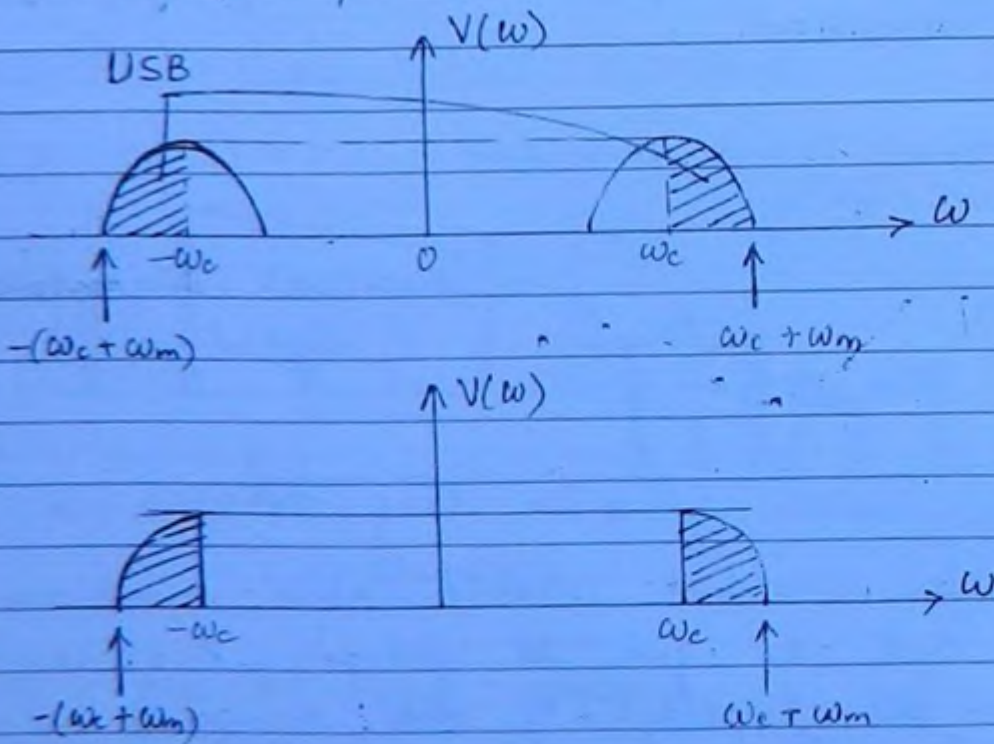 V(ω)
USB
ω
-ωc 0 ωc
-(ωc + ωm) ωc + ωm
V(ω)
ω
-ωc ωc
-(ωc + ωm) ωc + ωm